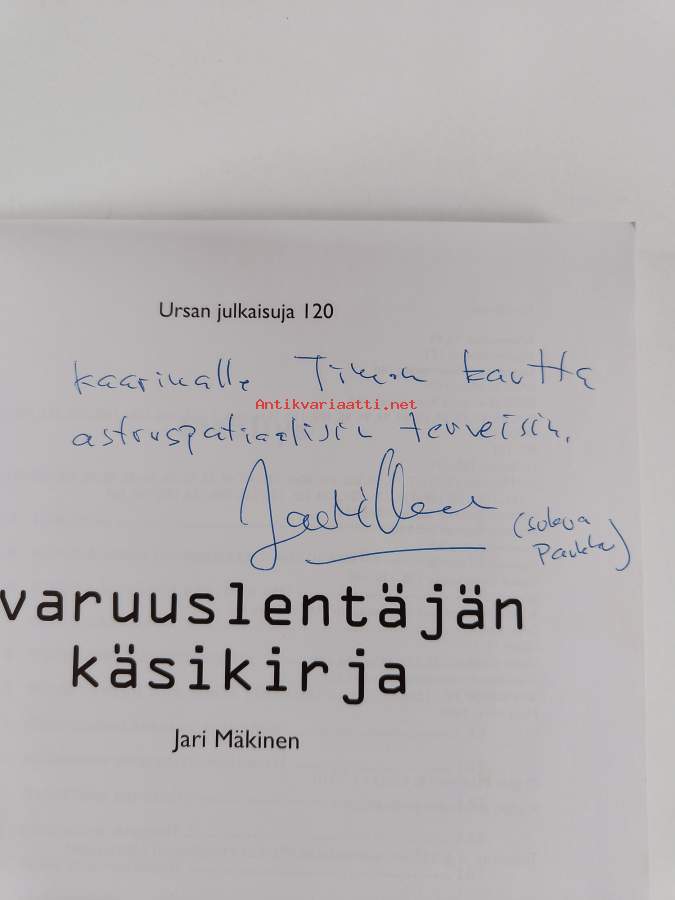 Ursan julkaisuja 120
Kaarinalle Timon kautta
Antikvariaatti.net
astrospatiaalisin terveisin,
varuuslentäjän
käsikirja
Jari Mäkinen